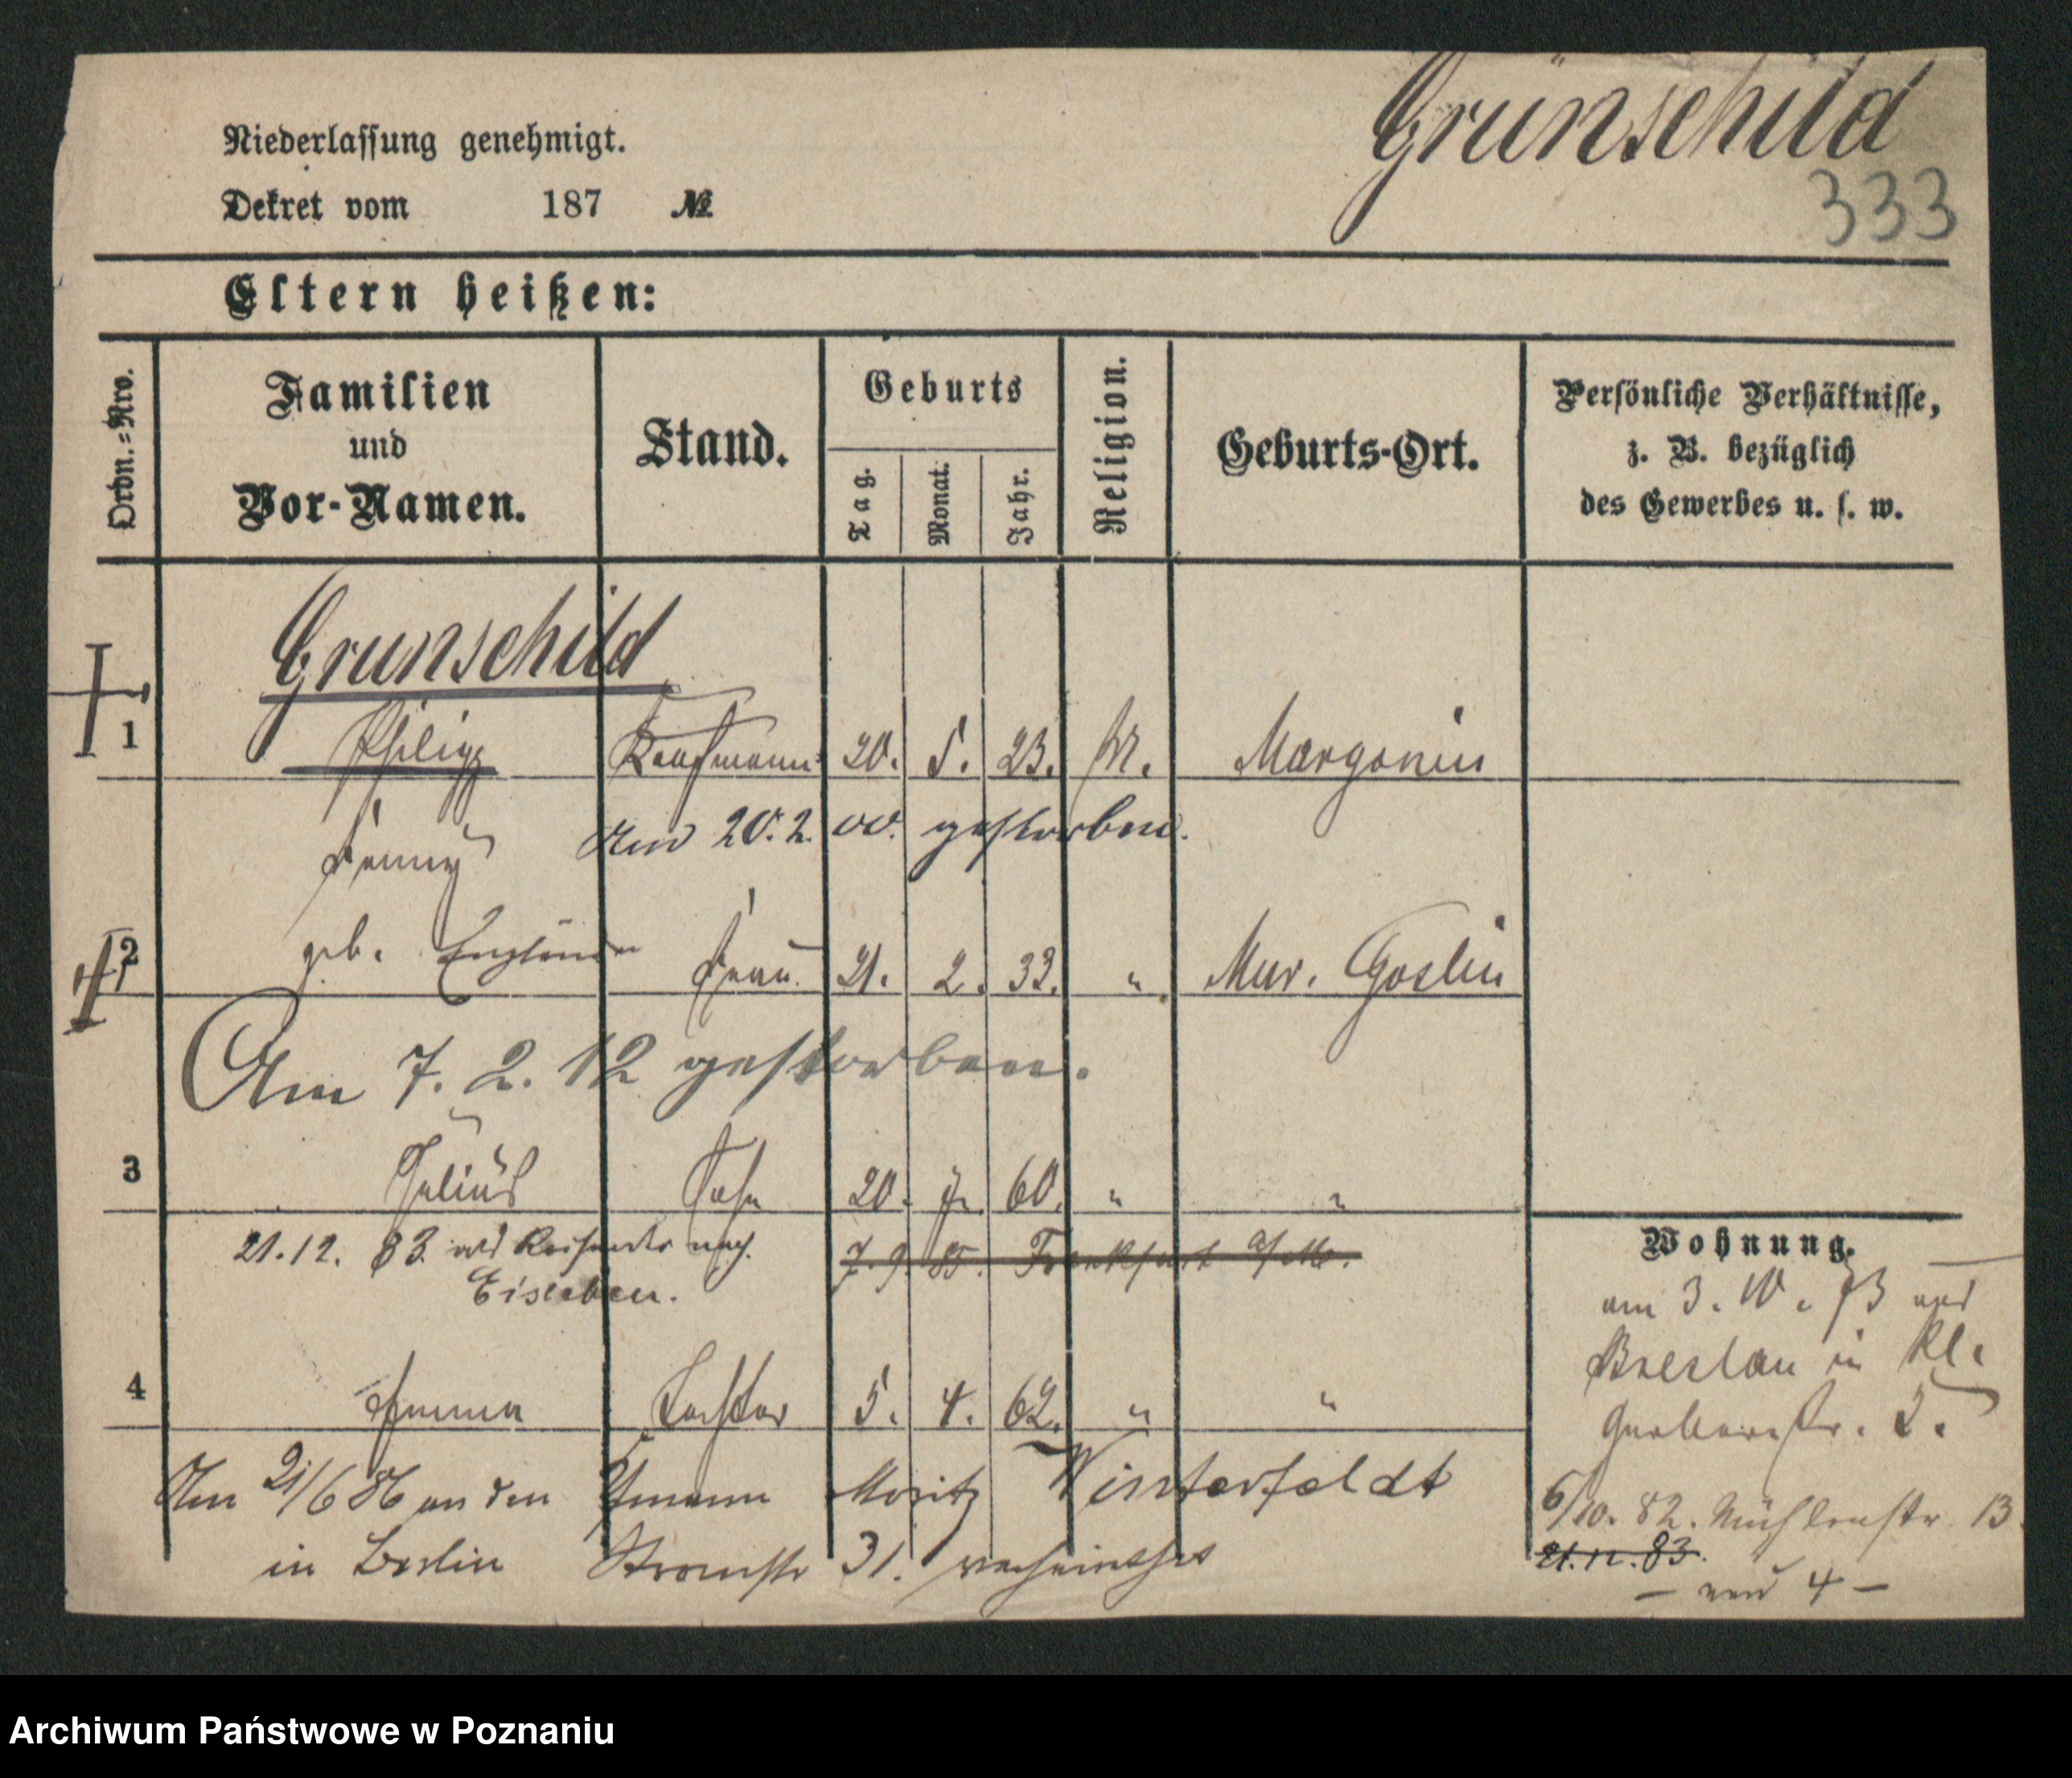 Grünschild
333
Niederlassung genehmigt.
Dekret vom 187 №
Eltern heißen:
Ordn.=Nro.
Familien
und
Vor-Namen.
Stand.
Geburts
Tag.
Monat.
Jahr.
Religion.
Geburts-Ort.
Persönliche Verhältnisse,
z. B. bezüglich
des Gewerbes u. s. w.
Grünschild
1 Philipp Kaufmann 20. 5. 23. M. Margonin
Am 20. 2. 00. gestorben.
Fanny
2 geb. Engländer Frau. 21. 2. 33. " Mur. Goslin
Am 7. 2. 12 gestorben.
3 Julius Sohn 20. 7. 60. " "
21.12. 83. als Reisender nach
7. 9. 85. Frankfurt a/M.
Eisleben.
4 Emma Tochter 5. 4. 62. " "
Am 21/6 86 an den Kfmann Moritz Winterfeldt
in Berlin Stromstr 31. verheirathet
Wohnung.
am 3. 10. 73 aus
Breslau in Kl.
Gerberstr. 2.
6/10. 82. Mühlenstr 13
21.12.83.
– und 4 –
Archiwum Państwowe w Poznaniu